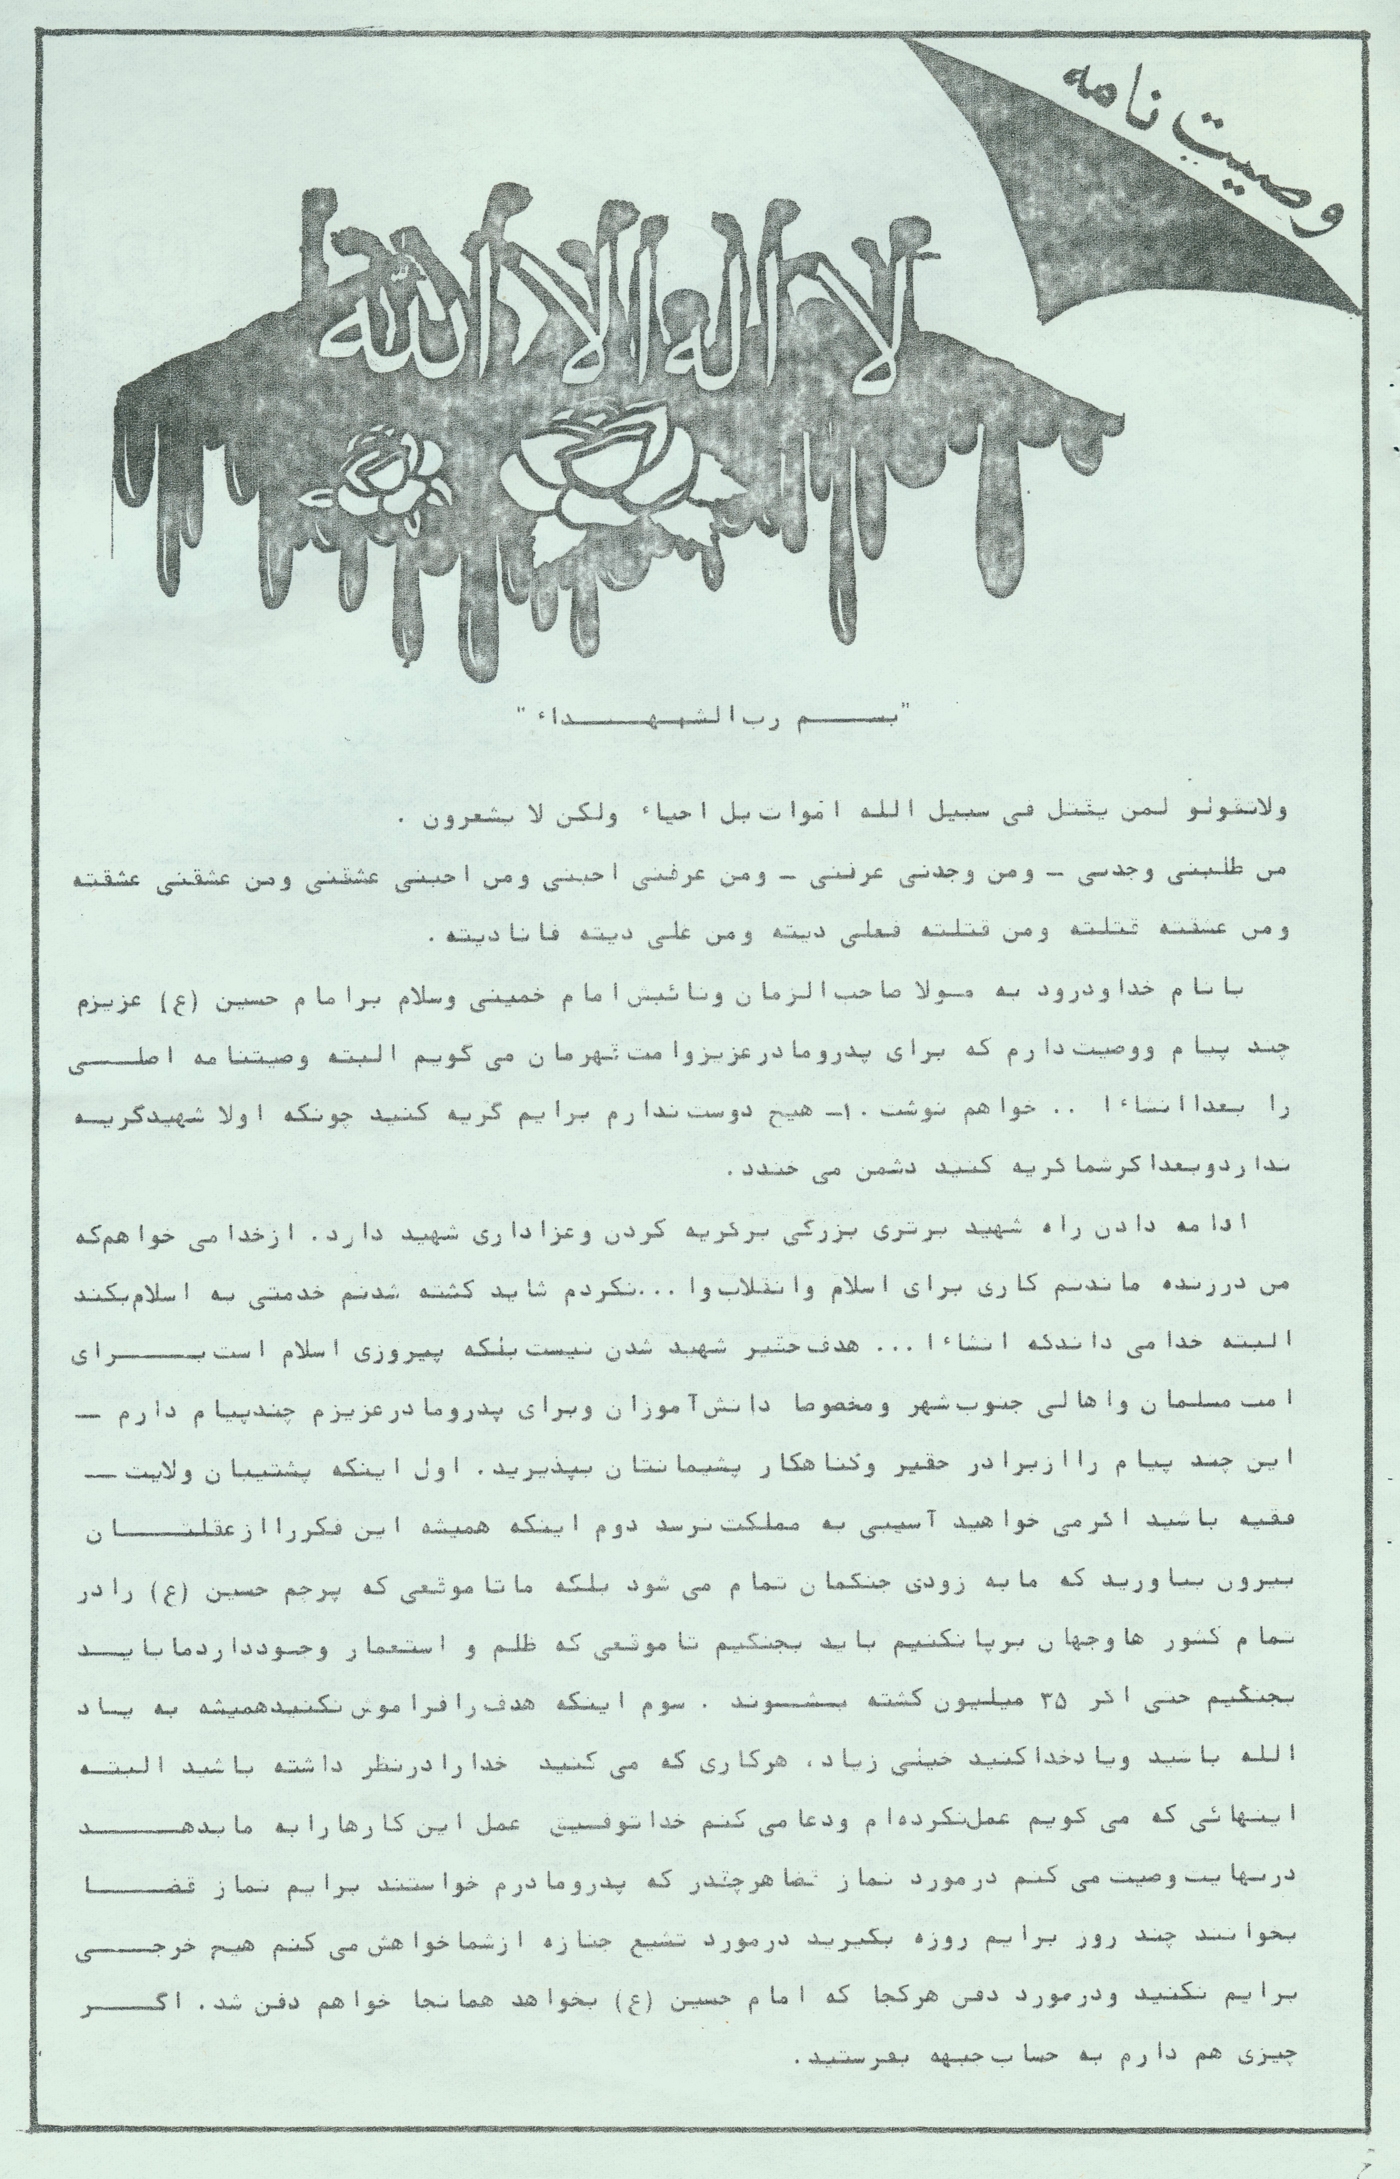 وصیت نامه
لا اله الا الله
"بسم رب الشهداء"
ولاتقولو لمن یقتل فی سبیل الله اموات بل احیاء ولکن لا یشعرون .
من طلبنی وجدنی – ومن وجدنی عرفنی – ومن عرفنی احبنی ومن احبنی عشقنی ومن عشقنی عشقته
ومن عشقته قتلته ومن قتلته فعلی دیته ومن علی دیته فانادیته.
بانام خداودرود به مولا صاحب الزمان ونائبش امام خمینی وسلام برامام حسین (ع) عزیزم
چند پیام ووصیت دارم که برای پدرومادرعزیزوامت قهرمان می گویم البته وصیتنامه اصلی
را بعداانشاءا .. خواهم نوشت .۱– هیچ دوست ندارم برایم گریه کنید چونکه اولا شهیدگریه
نداردوبعداگرشماگریه کنید دشمن می خندد.
ادامه دادن راه شهید برتری بزرگی برگریه کردن وعزاداری شهید دارد. ازخدامی خواهم که
من درزنده ماندنم کاری برای اسلام وانقلاب وا ...نکردم شاید کشته شدنم خدمتی به اسلام بکند
البته خدامی داندکه انشاءا ... هدف حقیر شهید شدن نیست بلکه پیروزی اسلام است برای
امت مسلمان واهالی جنوب شهر ومخصوصا دانش آموزان وبرای پدرومادرعزیزم چندپیام دارم –
این چند پیام راازبرادر حقیر وگناهکار پشیمانتان بپذیرید. اول اینکه پشتیبان ولایت –
فقیه باشید اگرمی خواهید آسیبی به مملکت نرسد دوم اینکه همیشه این فکرراازعقلتان
بیرون بیاورید که مابه زودی جنگمان تمام می شود بلکه ماتاموقعی که پرچم حسین (ع) رادر
تمام کشور هاوجهان برپانکنیم باید بجنگیم تاموقعی که ظلم و استعمار وجودداردماباید
بجنگیم حتی اگر ۳۵ میلیون کشته بشوند . سوم اینکه هدف رافراموش نکنیدهمیشه به یاد
الله باشید ویادخداکنید خیلی زیاد، هرکاری که می کنید خدارادرنظر داشته باشید البته
اینهائی که می گویم عمل نکرده ام ودعامی کنم خداتوفیق عمل این کارهارابه مابدهد
درنهایت وصیت می کنم درمورد نماز قضاهرچقدر که پدرومادرم خواستند برایم نماز قضا
بخوانند چند روز برایم روزه بگیرید درمورد تشیع جنازه ازشماخواهش می کنم هیچ خرجی
برایم نکنید ودرمورد دفن هرکجا که امام حسین (ع) بخواهد همانجا خواهم دفن شد. اگر
چیزی هم دارم به حساب جبهه بفرستید.